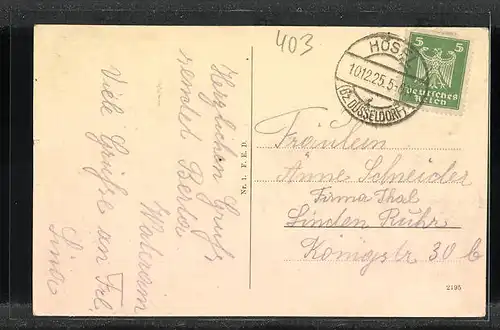 403
HÖS
10.12.25.5-
(Bz. DÜSSELDORF)
5 5
Deutsches
Reich
Herzlichen Gruß
sendet
Viele Grüße an Frl.
Nr. 1. F. E. D.
Fräulein
Änne Schneider
Firma Thal
Linden Ruhr
Königstr. 30 b
2195